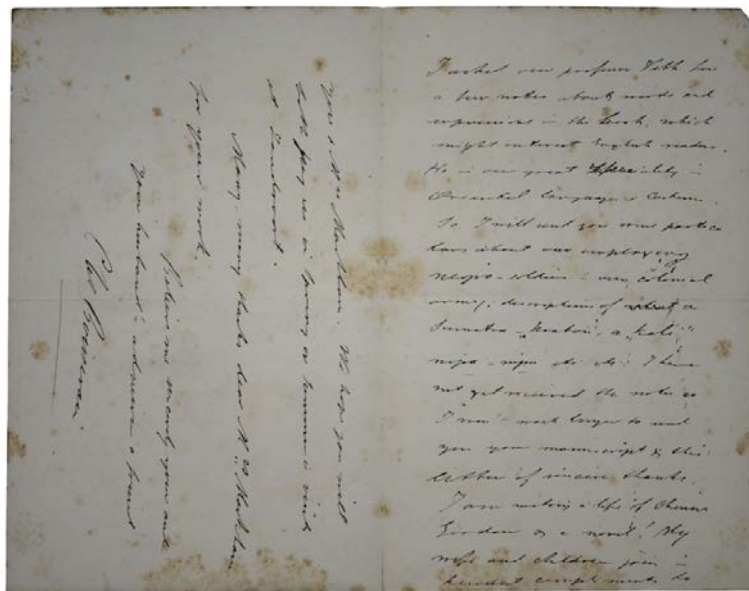 I asked our professor Veth for
a few notes about words and
expressions in the book, which
might interest English readers.
He is our great speciality in
Oriental languages & customs.
So I will send you some particu
lars about our employing
negro-soldiers in our colonial
army; description of what a
Sumatra "kraton", a "kali",
nipa-nipa etc etc. I have
not yet received the notes so
I won't wait longer to send
you your manuscript & this
letter of sincere thanks.
I am writing a life of Chinese
Gordon as a novel! My
wife and children join in
kindest compliments to
you & Mr Markham. We hope you will
both pay us in spring or summer a visit
at
Many, many thanks dear Mrs Markham
for your work.
Believe me sincerely your and
your husband's admirer & friend